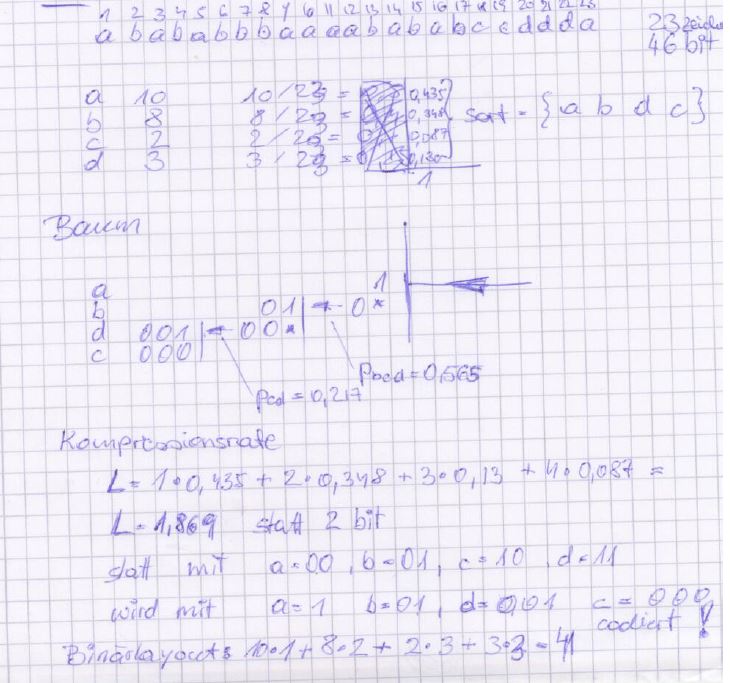 1 2 3 4 5 6 7 8 9 10 11 12 13 14 15 16 17 18 19 20 21 22 23
a b a b a b b b a a a a b a b a b c c d d d a
23 Zeichen
46 bit
a 10 10/23 = 0,435
b 8 8/23 = 0,348
c 2 2/23 = 0,087
d 3 3/23 = 0,130
sort = {a b d c}
1
Baum
a 1
b 01 0*
d 001 00*
c 000
Pbcd = 0,565
Pcd = 0,217
Kompressionsrate
L = 1·0,435 + 2·0,348 + 3·0,13 + 4·0,087 =
L = 1,869 statt 2 bit
statt mit a=00, b=01, c=10, d=11
wird mit a=1 b=01, d=001 c=000
codiert !
Binärlayout: 10·1 + 8·2 + 2·3 + 3·3 = 41